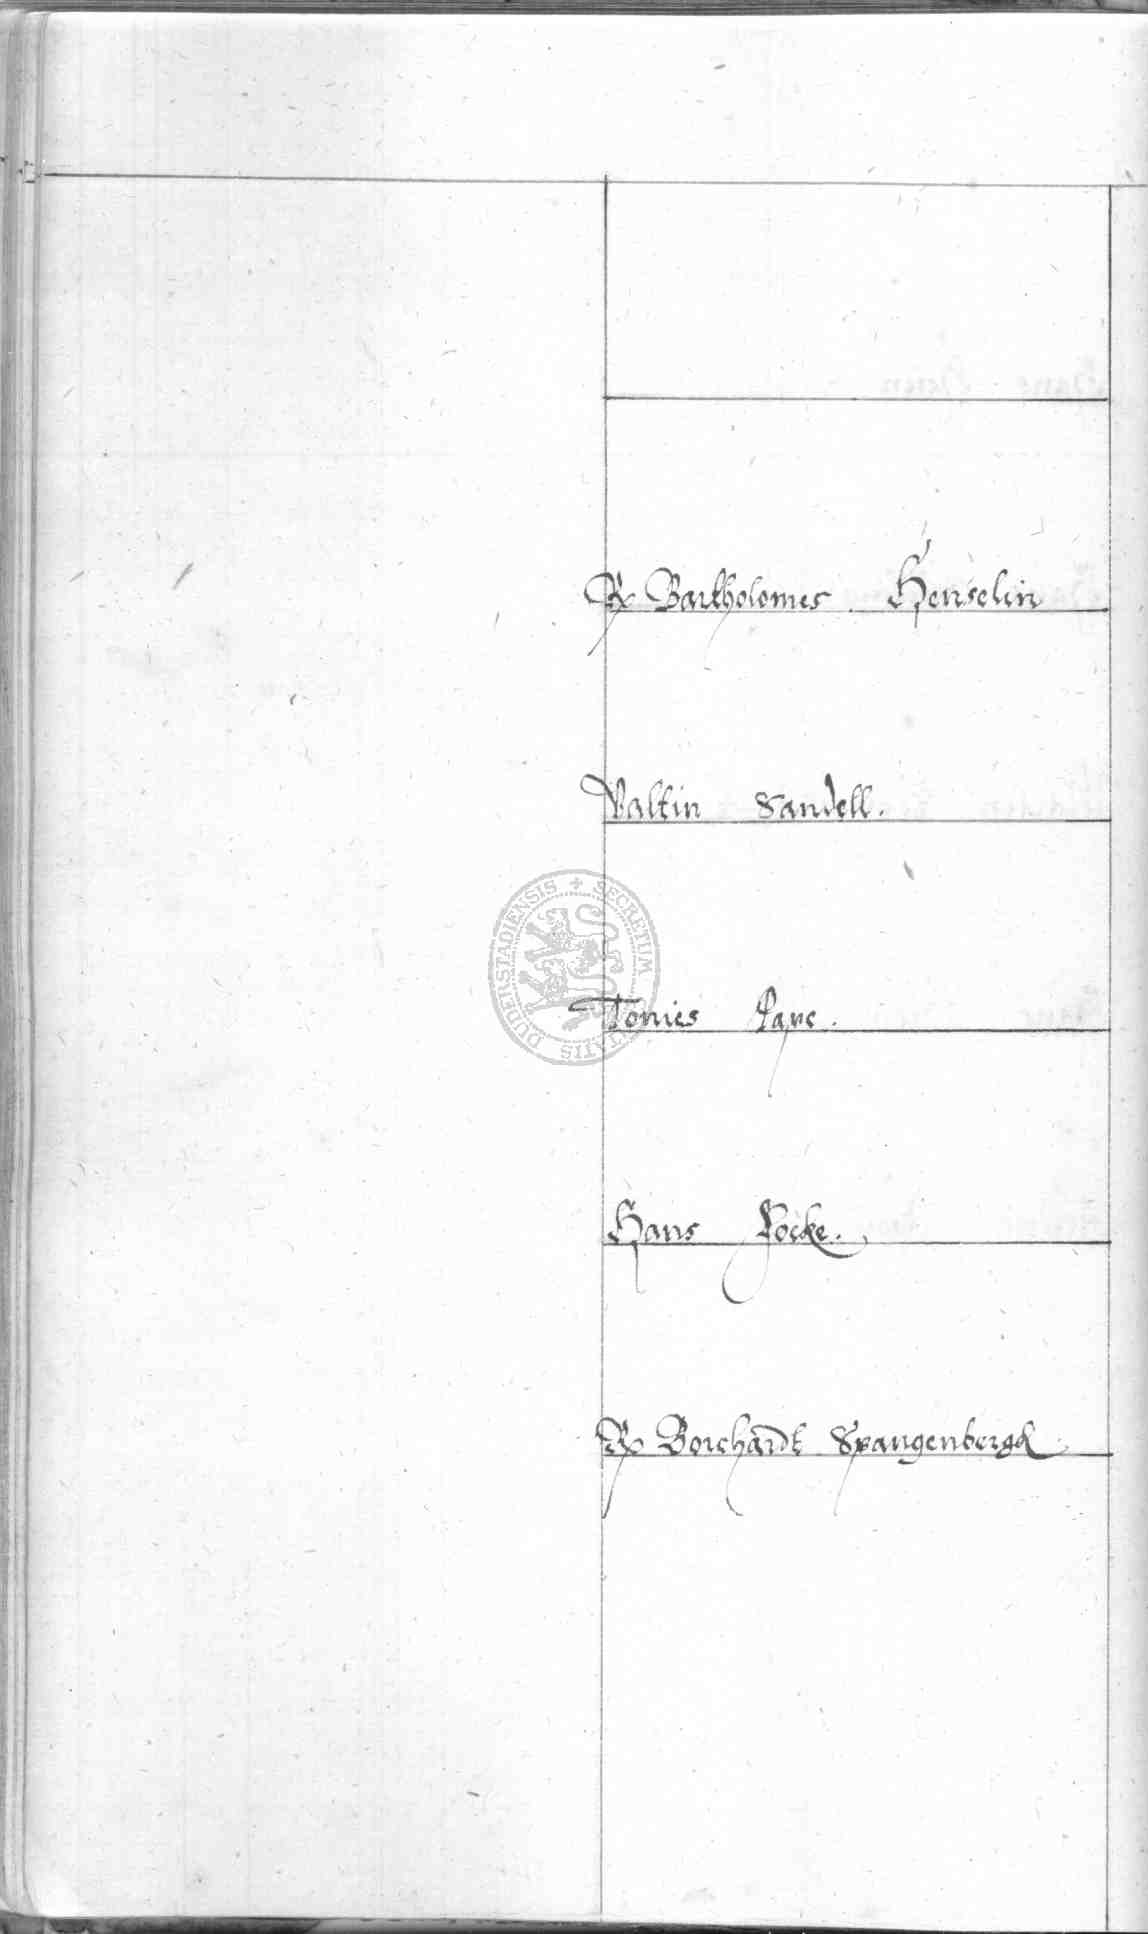 Bartholomes Henselin
Valtin Sandell.
SECRETUM CIVITATIS DUDERSTADIENSIS +
Tonies Pape.
Hans Focke.
Borchardt Spangenbergk